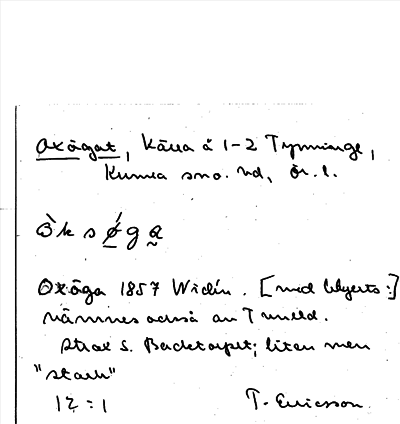 Oxögat, källa å 1-2 Tynninge,
Kumla sn o. hd, Ör. l.
ò̀k s ǿ g a
Oxöga 1857 Widin. [med blyerts:]
nämnes också av Tuneld.
strax s. Backetorpet; liten men
"stark"
12:1 T. Ericsson